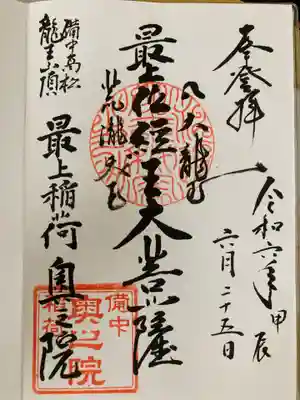 奉登拝
令和六年 甲辰
六月二十五日
八大龍王
最上位経王大菩薩
備中高松
龍王山頂
最上稲荷 奥之院
備中
奥之院
稲荷